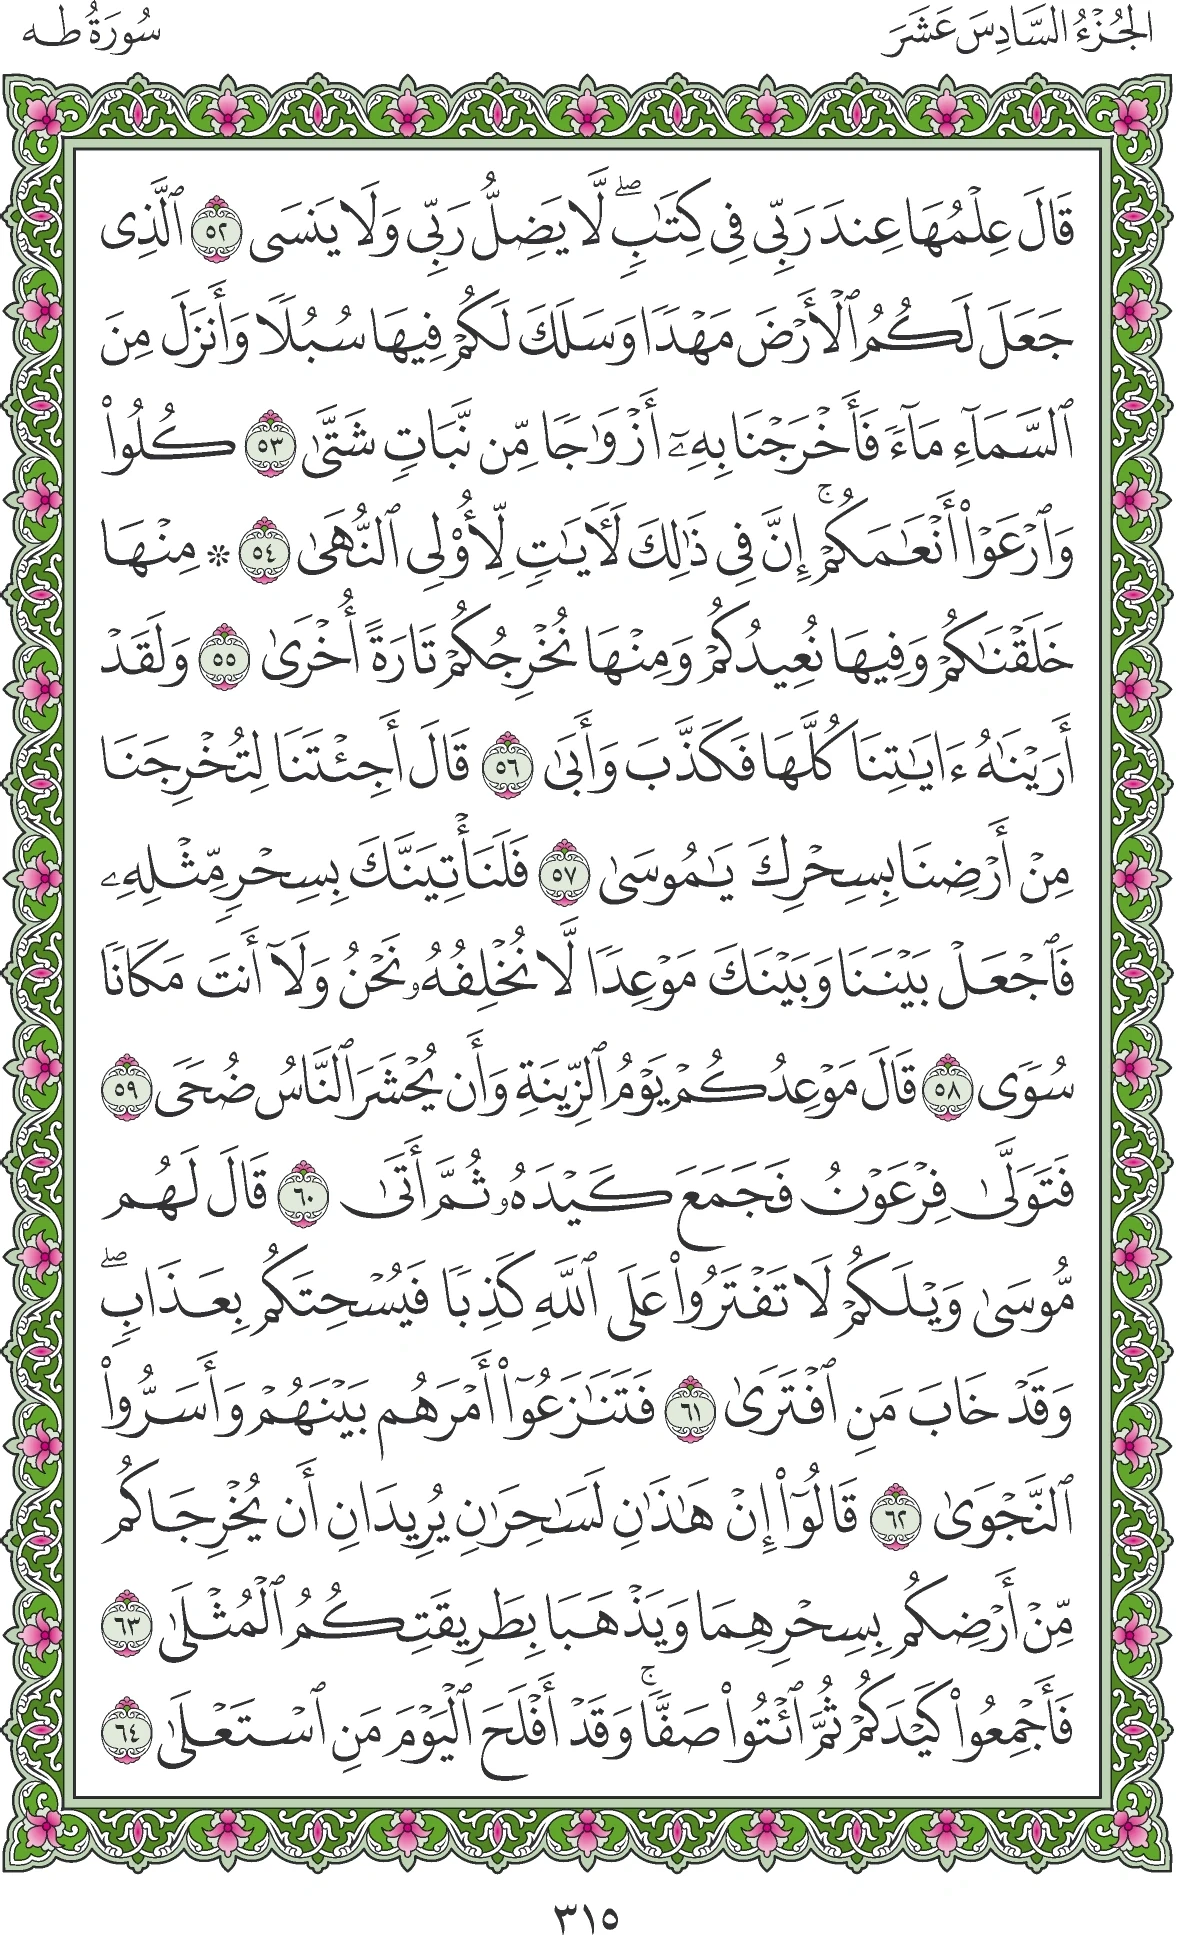 الجُزْءُ السَّادِسَ عَشَرَ
سُورَةُ طه
قَالَ عِلْمُهَا عِندَ رَبِّى فِى كِتَٰبٖۖ لَّا يَضِلُّ رَبِّى وَلَا يَنسَى ٥٢ ٱلَّذِى
جَعَلَ لَكُمُ ٱلْأَرْضَ مَهْدٗا وَسَلَكَ لَكُمْ فِيهَا سُبُلٗا وَأَنزَلَ مِنَ
ٱلسَّمَآءِ مَآءٗ فَأَخْرَجْنَا بِهِۦٓ أَزْوَٰجٗا مِّن نَّبَاتٖ شَتَّىٰ ٥٣ كُلُوا۟
وَٱرْعَوْا۟ أَنْعَٰمَكُمْۚ إِنَّ فِى ذَٰلِكَ لَأٓيَٰتٖ لِّأُو۟لِى ٱلنُّهَىٰ ٥٤ * مِنْهَا
خَلَقْنَٰكُمْ وَفِيهَا نُعِيدُكُمْ وَمِنْهَا نُخْرِجُكُمْ تَارَةً أُخْرَىٰ ٥٥ وَلَقَدْ
أَرَيْنَٰهُ ءَايَٰتِنَا كُلَّهَا فَكَذَّبَ وَأَبَىٰ ٥٦ قَالَ أَجِئْتَنَا لِتُخْرِجَنَا
مِنْ أَرْضِنَا بِسِحْرِكَ يَٰمُوسَىٰ ٥٧ فَلَنَأْتِيَنَّكَ بِسِحْرٖ مِّثْلِهِۦ
فَٱجْعَلْ بَيْنَنَا وَبَيْنَكَ مَوْعِدٗا لَّا نُخْلِفُهُۥ نَحْنُ وَلَآ أَنتَ مَكَانٗا
سُوٗى ٥٨ قَالَ مَوْعِدُكُمْ يَوْمُ ٱلزِّينَةِ وَأَن يُحْشَرَ ٱلنَّاسُ ضُحٗى ٥٩
فَتَوَلَّىٰ فِرْعَوْنُ فَجَمَعَ كَيْدَهُۥ ثُمَّ أَتَىٰ ٦٠ قَالَ لَهُم
مُّوسَىٰ وَيْلَكُمْ لَا تَفْتَرُوا۟ عَلَى ٱللَّهِ كَذِبٗا فَيُسْحِتَكُم بِعَذَابٖۖ
وَقَدْ خَابَ مَنِ ٱفْتَرَىٰ ٦١ فَتَنَٰزَعُوٓا۟ أَمْرَهُم بَيْنَهُمْ وَأَسَرُّوا۟
ٱلنَّجْوَىٰ ٦٢ قَالُوٓا۟ إِنْ هَٰذَٰنِ لَسَٰحِرَٰنِ يُرِيدَانِ أَن يُخْرِجَاكُم
مِّنْ أَرْضِكُم بِسِحْرِهِمَا وَيَذْهَبَا بِطَرِيقَتِكُمُ ٱلْمُثْلَىٰ ٦٣
فَأَجْمِعُوا۟ كَيْدَكُمْ ثُمَّ ٱئْتُوا۟ صَفّٗاۚ وَقَدْ أَفْلَحَ ٱلْيَوْمَ مَنِ ٱسْتَعْلَىٰ ٦٤
٣١٥